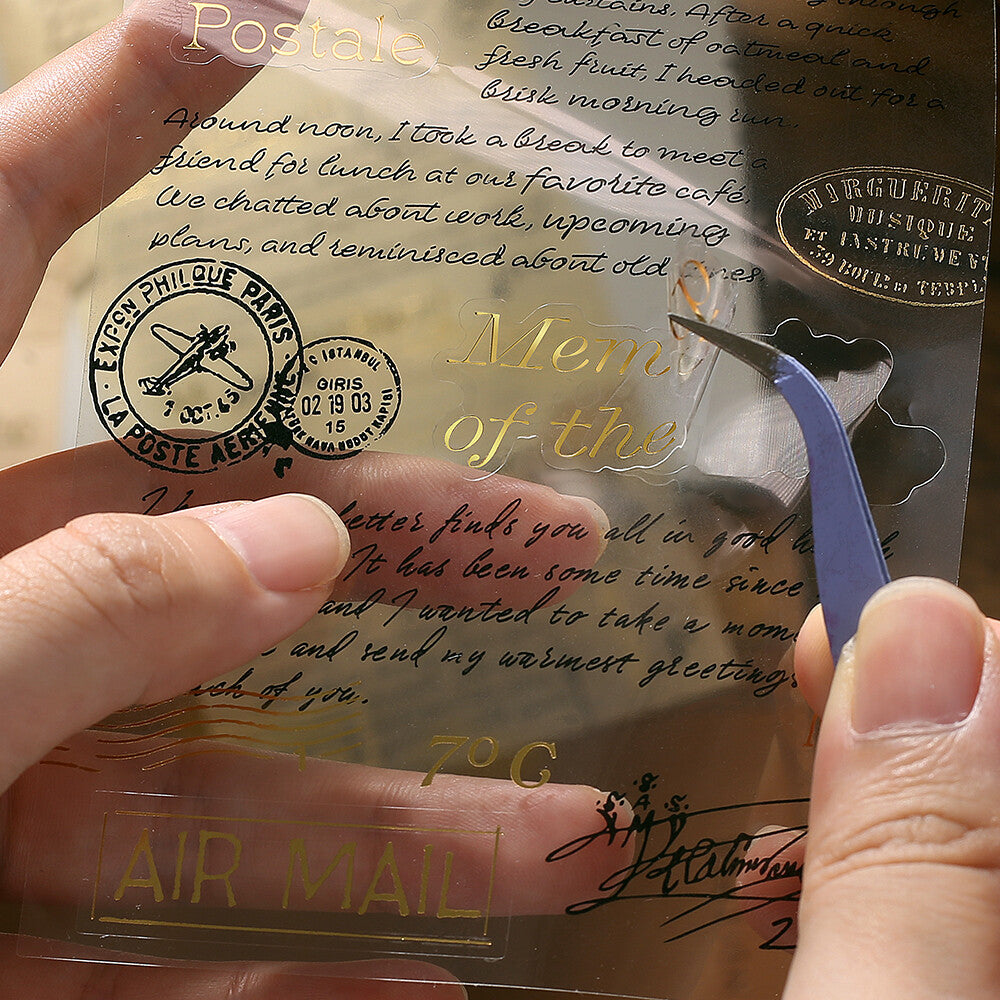 Postale
curtains. After a quick
breakfast of oatmeal and
fresh fruit, I headed out for a
brisk morning run.
Around noon, I took a break to meet a
friend for lunch at our favorite café.
We chatted about work, upcoming
plans, and reminisced about old
MIRGUERIT
MUSIQUE
ET INSTRUMEN
59 BOUL. D TEMPL
EXPON PHILQUE PARIS
7 OCT. 43
LA POSTE AERIENNE
ISTANBUL
GIRIS
02 19 03
15
Mem
of the
letter finds you all in good
It has been some time since
and I wanted to take a mom
and send my warmest greetings
of you.
7º C
AIR MAIL